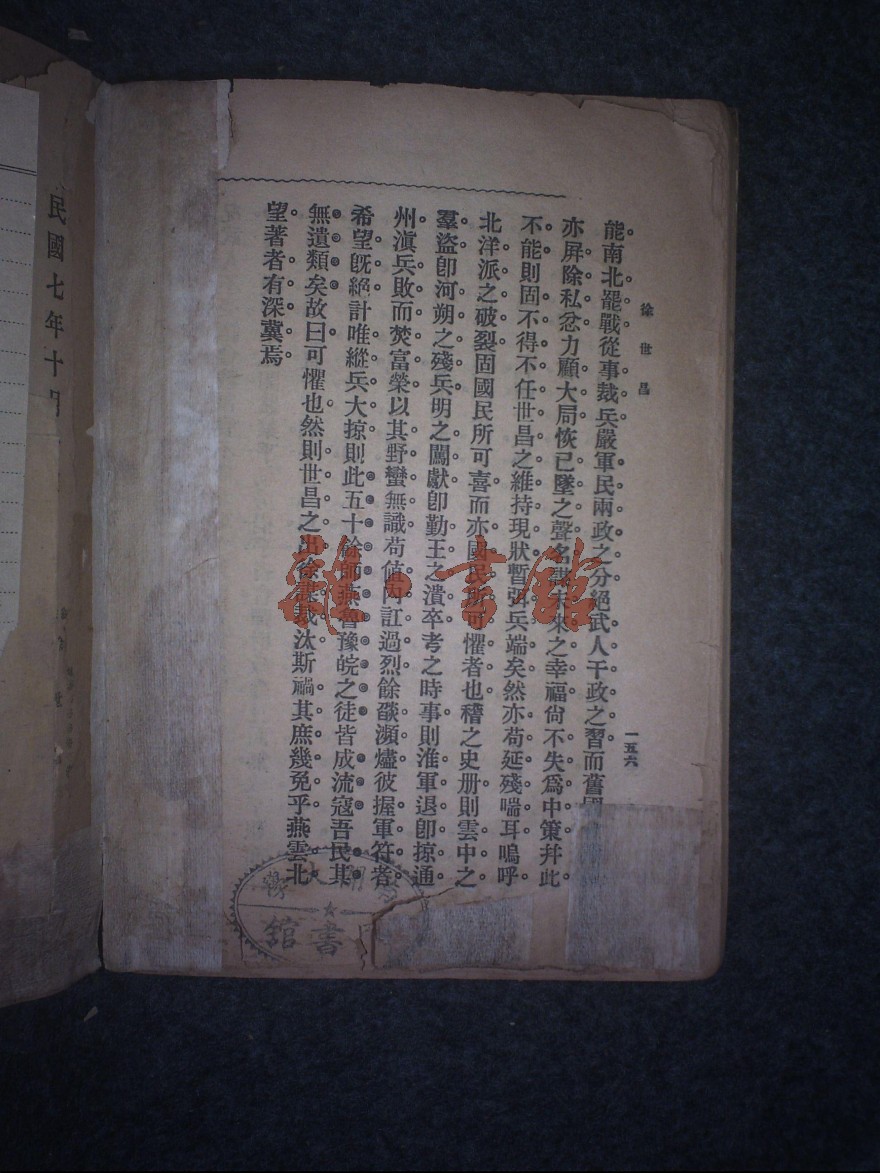 徐世昌
一五六
能南北罷戰從事裁兵嚴軍民兩政之分絕武人干政之習而舊國
亦屏除私忿力顧大局恢已墜之聲名謀未來之幸福尙不失爲中策幷此
不能則固不得不任世昌之維持現狀暫弭兵端矣然亦苟延殘喘耳嗚呼
北洋派之破裂固國民所可喜而亦國民所可懼者也稽之史册則雲中之
羣盜卽河朔之殘兵明之闖獻卽勤王之潰卒考之時事則淮軍退卽掠通
州滇兵敗而焚富榮以其野蠻無識苟値內訌過烈餘燄瀕燼彼握軍符者
希望旣絕計唯縱兵大掠則此五十餘師燕魯豫皖之徒皆成流寇吾民其
無遺類矣故曰可懼也然則世昌之出徐謀裁汰斯禍其庶幾免乎燕雲北
望著者有深冀焉
雜·書館
書館
民國七年十月